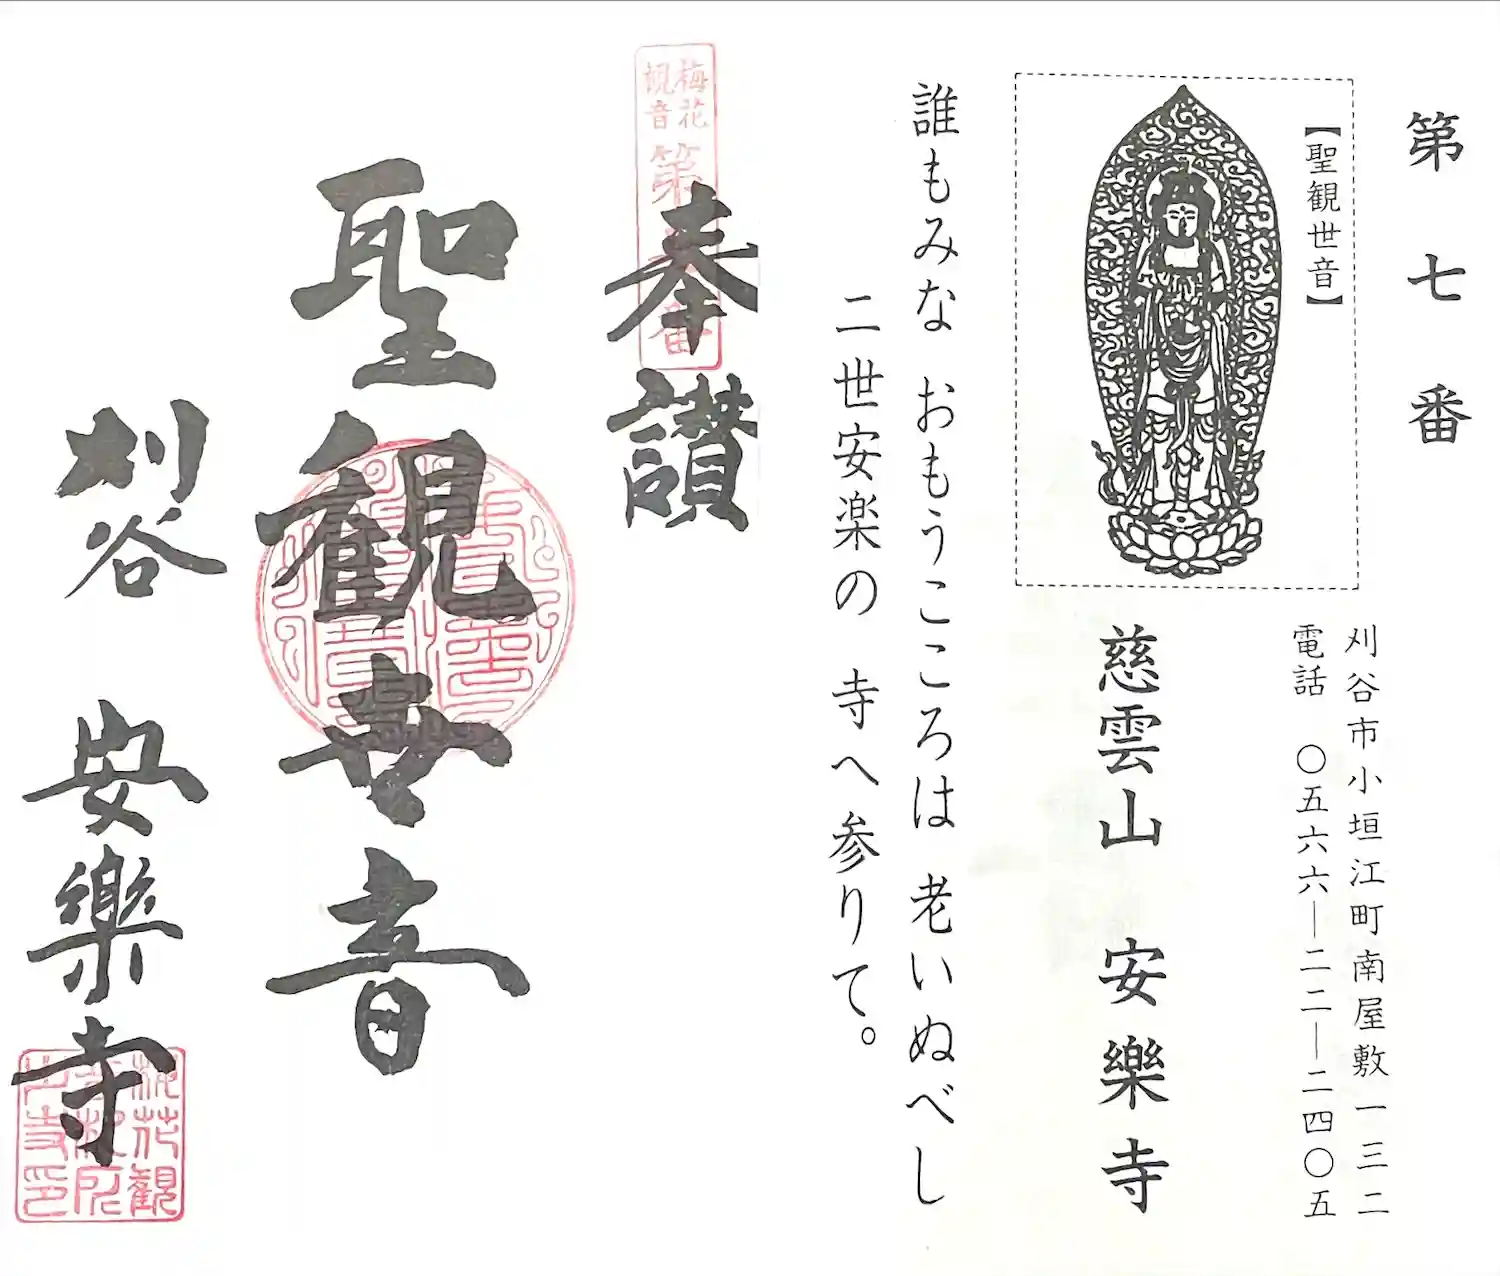 第七番
【聖観世音】
刈谷市小垣江町南屋敷一三二
電話 〇五六六―二二―二四〇五
慈雲山 安樂寺
誰もみな おもうこころは 老いぬべし
二世安楽の 寺へ参りて。
梅花
観音
第 番
奉讃
聖観世音
刈谷 安樂寺